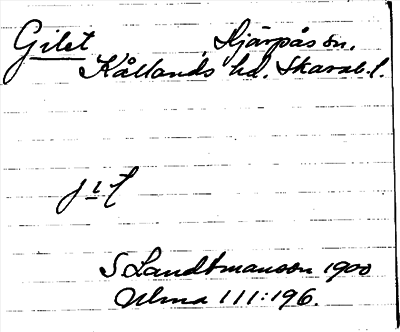 Gilet Hjärpås sn.
Kållands hd. Skarab. l.
jit
S Landtmanson 1900
Ulma 111:196.